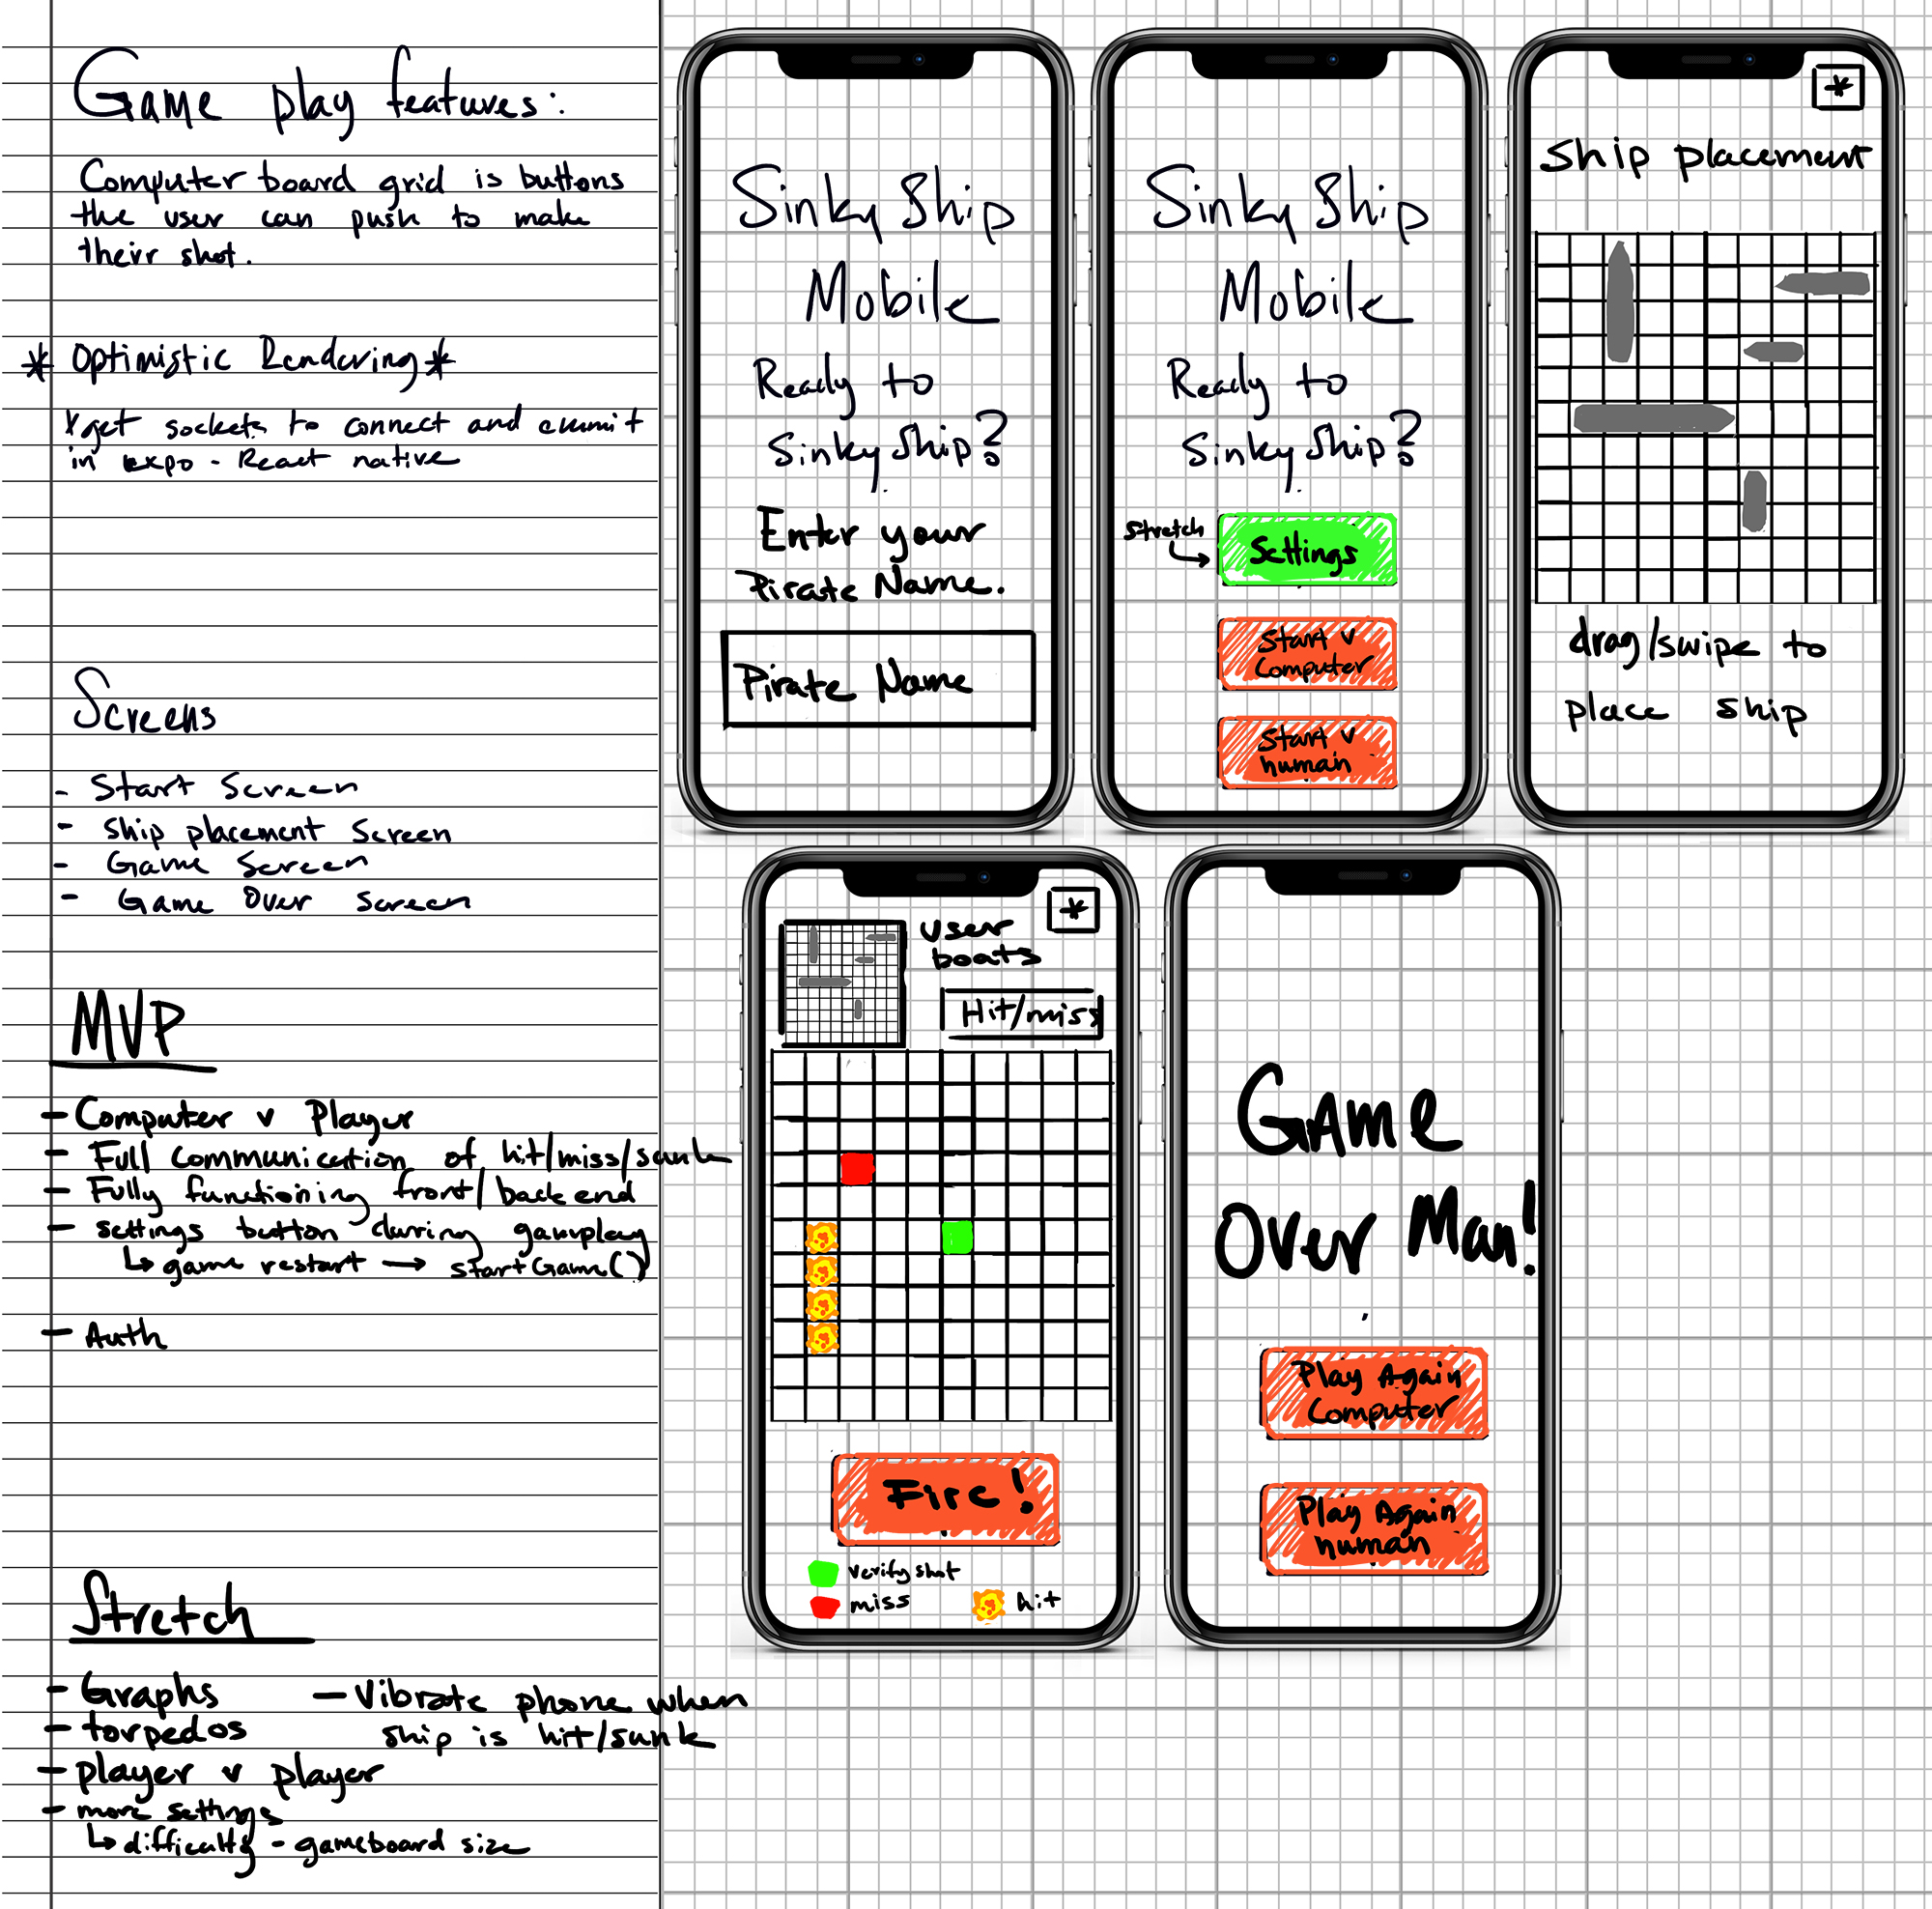 Game play features:
Computer board grid is buttons
the user can push to make
their shot.
* Optimistic Rendering *
* get sockets to connect and emmit
in expo - React native
Screens
- Start Screen
- Ship placement Screen
- Game Screen
- Game Over Screen
MVP
- Computer v Player
- Full communication of hit/miss/sunk
- Fully functioning front/backend
- settings button during gameplay
↳ game restart → startGame()
- Auth
Stretch
- Graphs
- torpedos
- player v player
- more settings
↳ difficulty - gameboard size
- Vibrate phone when
ship is hit/sunk
Sinky Ship
Mobile
Ready to
Sinky Ship?
Enter your
Pirate Name.
Pirate Name
Sinky Ship
Mobile
Ready to
Sinky Ship?
Stretch
Settings
Start v
Computer
Start v
human
*
Ship placement
drag/swipe to
place ship
*
user
boats
Hit/miss
Fire!
verify shot
miss
hit
Game
Over Man!
Play Again
Computer
Play Again
human